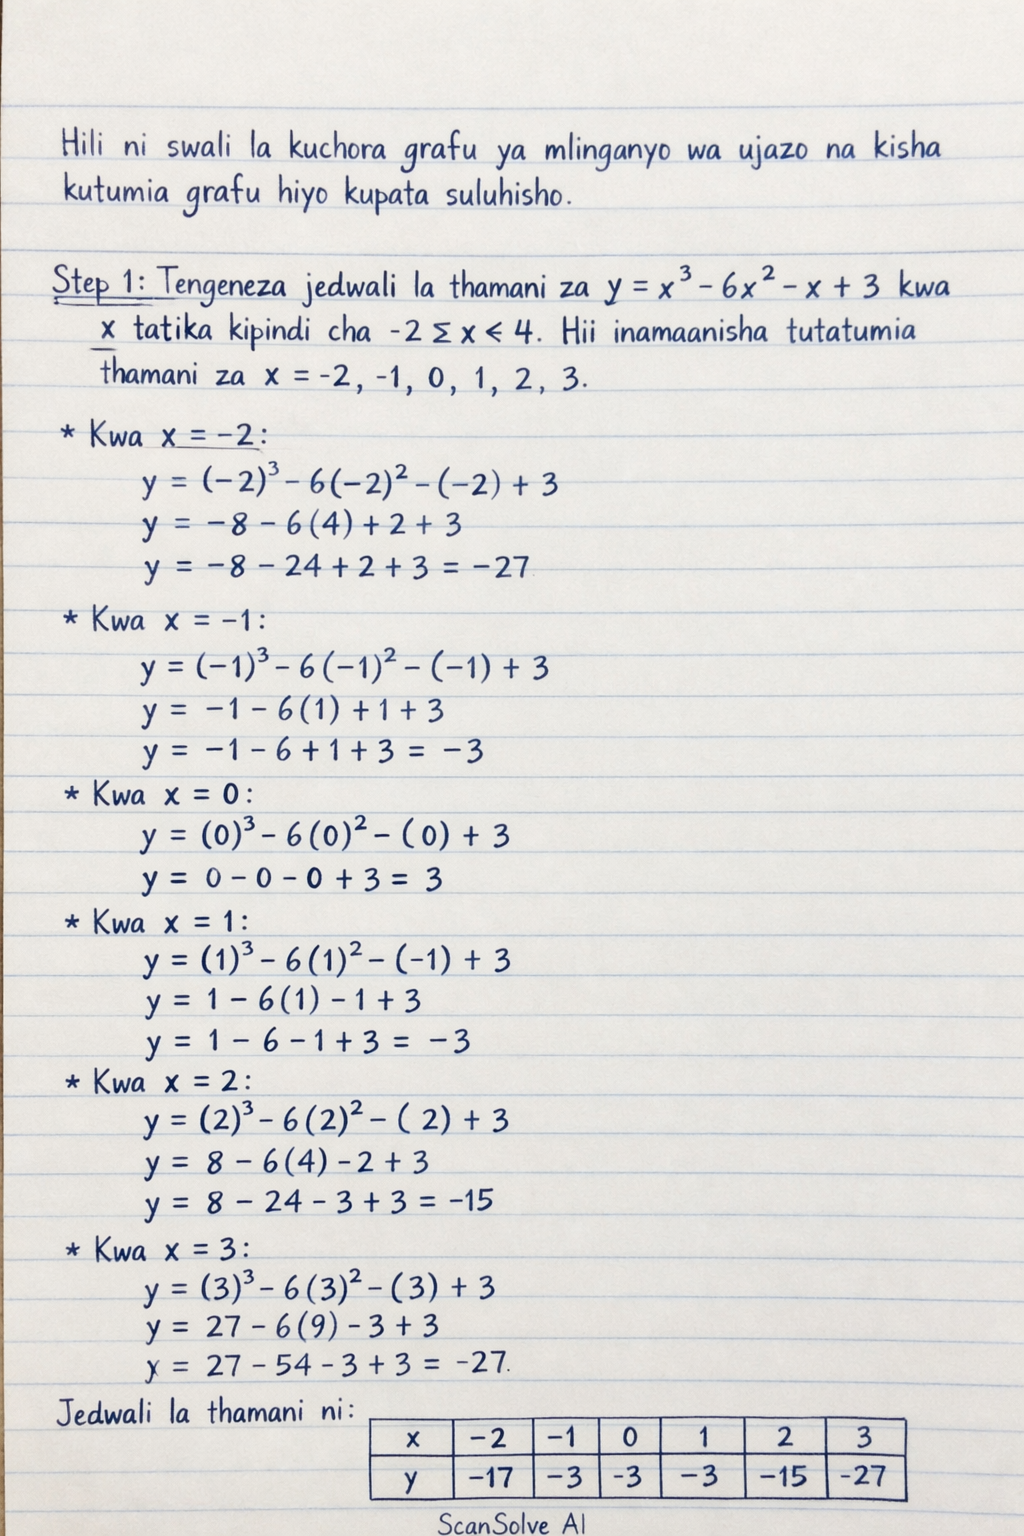 Hili ni swali la kuchora grafu ya mlinganyo wa ujazo na kisha
kutumia grafu hiyo kupata suluhisho.
Step 1: Tengeneza jedwali la thamani za y = x³ - 6x² - x + 3 kwa
x tatika kipindi cha -2 Σ x < 4. Hii inamaanisha tutatumia
thamani za x = -2, -1, 0, 1, 2, 3.
* Kwa x = -2:
y = (-2)³ - 6(-2)² - (-2) + 3
y = -8 - 6(4) + 2 + 3
y = -8 - 24 + 2 + 3 = -27
* Kwa x = -1:
y = (-1)³ - 6(-1)² - (-1) + 3
y = -1 - 6(1) + 1 + 3
y = -1 - 6 + 1 + 3 = -3
* Kwa x = 0:
y = (0)³ - 6(0)² - (0) + 3
y = 0 - 0 - 0 + 3 = 3
* Kwa x = 1:
y = (1)³ - 6(1)² - (-1) + 3
y = 1 - 6(1) - 1 + 3
y = 1 - 6 - 1 + 3 = -3
* Kwa x = 2:
y = (2)³ - 6(2)² - ( 2) + 3
y = 8 - 6(4) - 2 + 3
y = 8 - 24 - 3 + 3 = -15
* Kwa x = 3:
y = (3)³ - 6(3)² - (3) + 3
y = 27 - 6(9) - 3 + 3
y = 27 - 54 - 3 + 3 = -27.
Jedwali la thamani ni:
x -2 -1 0 1 2 3
y -17 -3 -3 -3 -15 -27
ScanSolve AI